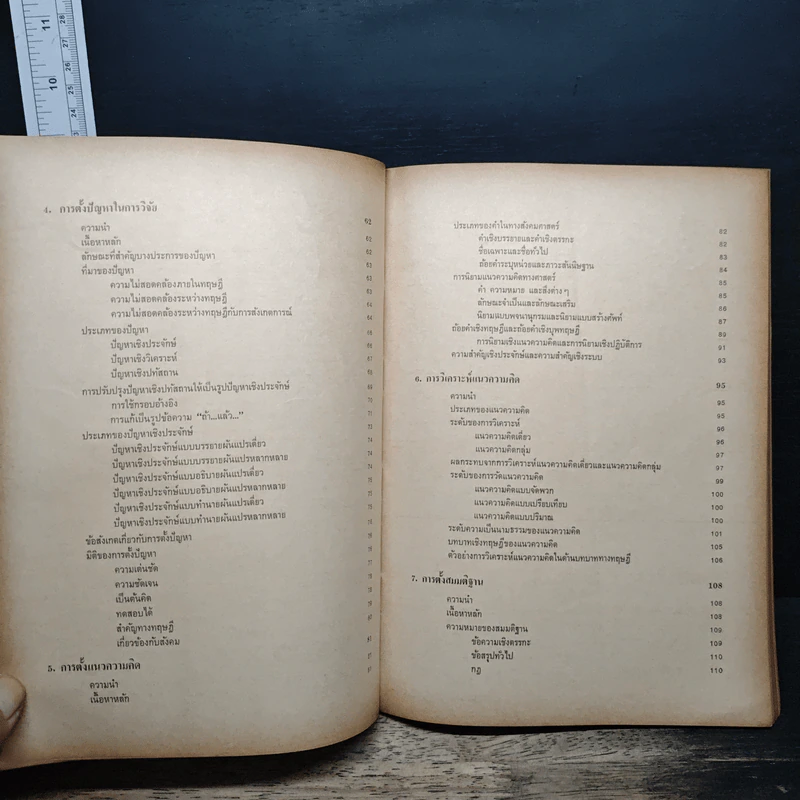 11
28
27
26
25
10
24
4. การตั้งปัญหาในการวิจัย 62
ความนำ 62
เนื้อหาหลัก
ลักษณะที่สำคัญบางประการของปัญหา
ที่มาของปัญหา
ความไม่สอดคล้องภายในทฤษฎี
ความไม่สอดคล้องระหว่างทฤษฎี
ความไม่สอดคล้องระหว่างทฤษฎีกับการสังเกตการณ์
ประเภทของปัญหา
ปัญหาเชิงประจักษ์
ปัญหาเชิงวิเคราะห์
ปัญหาเชิงปทัสถาน
การปรับปรุงปัญหาเชิงปทัสถานให้เป็นรูปปัญหาเชิงประจักษ์
การใช้กรอบอ้างอิง
การแก้เป็นรูปข้อความ “ถ้า...แล้ว...”
ประเภทของปัญหาเชิงประจักษ์
ปัญหาเชิงประจักษ์แบบบรรยายผันแปรเดี่ยว
ปัญหาเชิงประจักษ์แบบบรรยายผันแปรหลากหลาย
ปัญหาเชิงประจักษ์แบบอธิบายผันแปรเดี่ยว
ปัญหาเชิงประจักษ์แบบอธิบายผันแปรหลากหลาย
ปัญหาเชิงประจักษ์แบบทำนายผันแปรเดี่ยว
ปัญหาเชิงประจักษ์แบบทำนายผันแปรหลากหลาย
ข้อสังเกตเกี่ยวกับการตั้งปัญหา
มิติของการตั้งปัญหา
ความเด่นชัด
ความชัดเจน
เป็นต้นคิด
ทดสอบได้
สำคัญทางทฤษฎี
เกี่ยวข้องกับสังคม
5. การตั้งแนวความคิด
ความนำ
เนื้อหาหลัก
ประเภทของคำในทางสังคมศาสตร์ 82
คำเชิงบรรยายและคำเชิงตรรกะ 82
ชื่อเฉพาะและชื่อทั่วไป 83
ถ้อยคำระบุหน่วยและภาวะสันนิษฐาน 84
การนิยามแนวความคิดทางศาสตร์ 85
คำ ความหมาย และสิ่งต่างๆ 85
ลักษณะจำเป็นและลักษณะเสริม 86
นิยามแบบพจนานุกรมและนิยามแบบสร้างศัพท์ 87
ถ้อยคำเชิงทฤษฎีและถ้อยคำเชิงบุพทฤษฎี 89
การนิยามเชิงแนวความคิดและการนิยามเชิงปฏิบัติการ 91
ความสำคัญเชิงประจักษ์และความสำคัญเชิงระบบ 93
6. การวิเคราะห์แนวความคิด 95
ความนำ 95
ประเภทของแนวความคิด 95
ระดับของการวิเคราะห์ 96
แนวความคิดเดี่ยว 96
แนวความคิดกลุ่ม 97
ผลกระทบจากการวิเคราะห์แนวความคิดเดี่ยวและแนวความคิดกลุ่ม 97
ระดับของการวัดแนวความคิด 99
แนวความคิดแบบจัดพวก 100
แนวความคิดแบบเปรียบเทียบ 100
แนวความคิดแบบปริมาณ 100
ระดับความเป็นนามธรรมของแนวความคิด 101
บทบาทเชิงทฤษฎีของแนวความคิด 105
ตัวอย่างการวิเคราะห์แนวความคิดในด้านบทบาททางทฤษฎี 106
7. การตั้งสมมติฐาน 108
ความนำ 108
เนื้อหาหลัก 108
ความหมายของสมมติฐาน 109
ข้อความเชิงตรรกะ 109
ข้อสรุปทั่วไป 110
กฎ 110